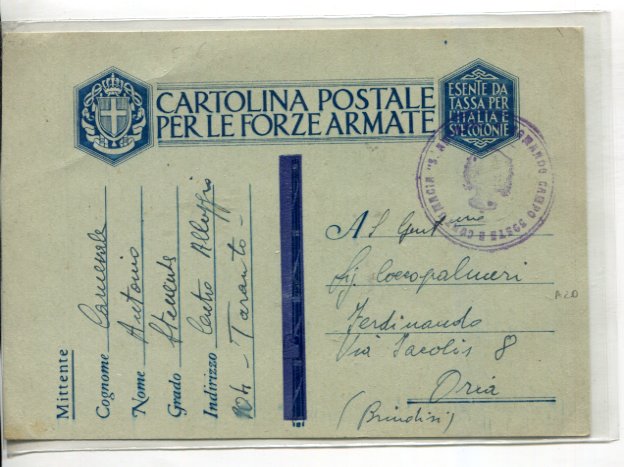 CARTOLINA POSTALE
PER LE FORZE ARMATE
ESENTE DA
TASSA PER
L'ITALIA E
SUE COLONIE
Mittente
Cognome Carnevale
Nome Antonio
Grado Stenente
Indirizzo Centro Alloggio
204 - Taranto -
Al Gent.mo
Sig. Coccopalmeri
Ferdinando
Via Pacolis 8
Oria
(Brindisi)
A 20
COMANDO CAMPO